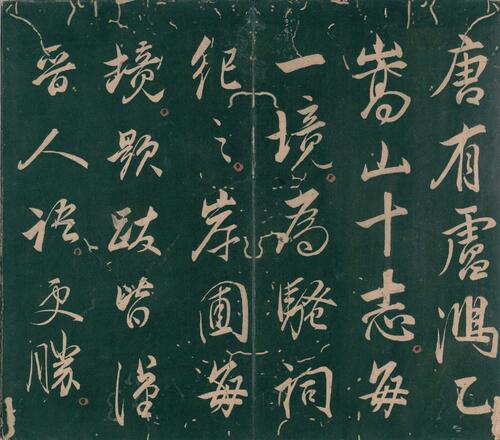 唐有盧鴻乙
嵩山十志每
一境為騷詞
紀之岸圃每
境題跋皆漢
晉人語更勝